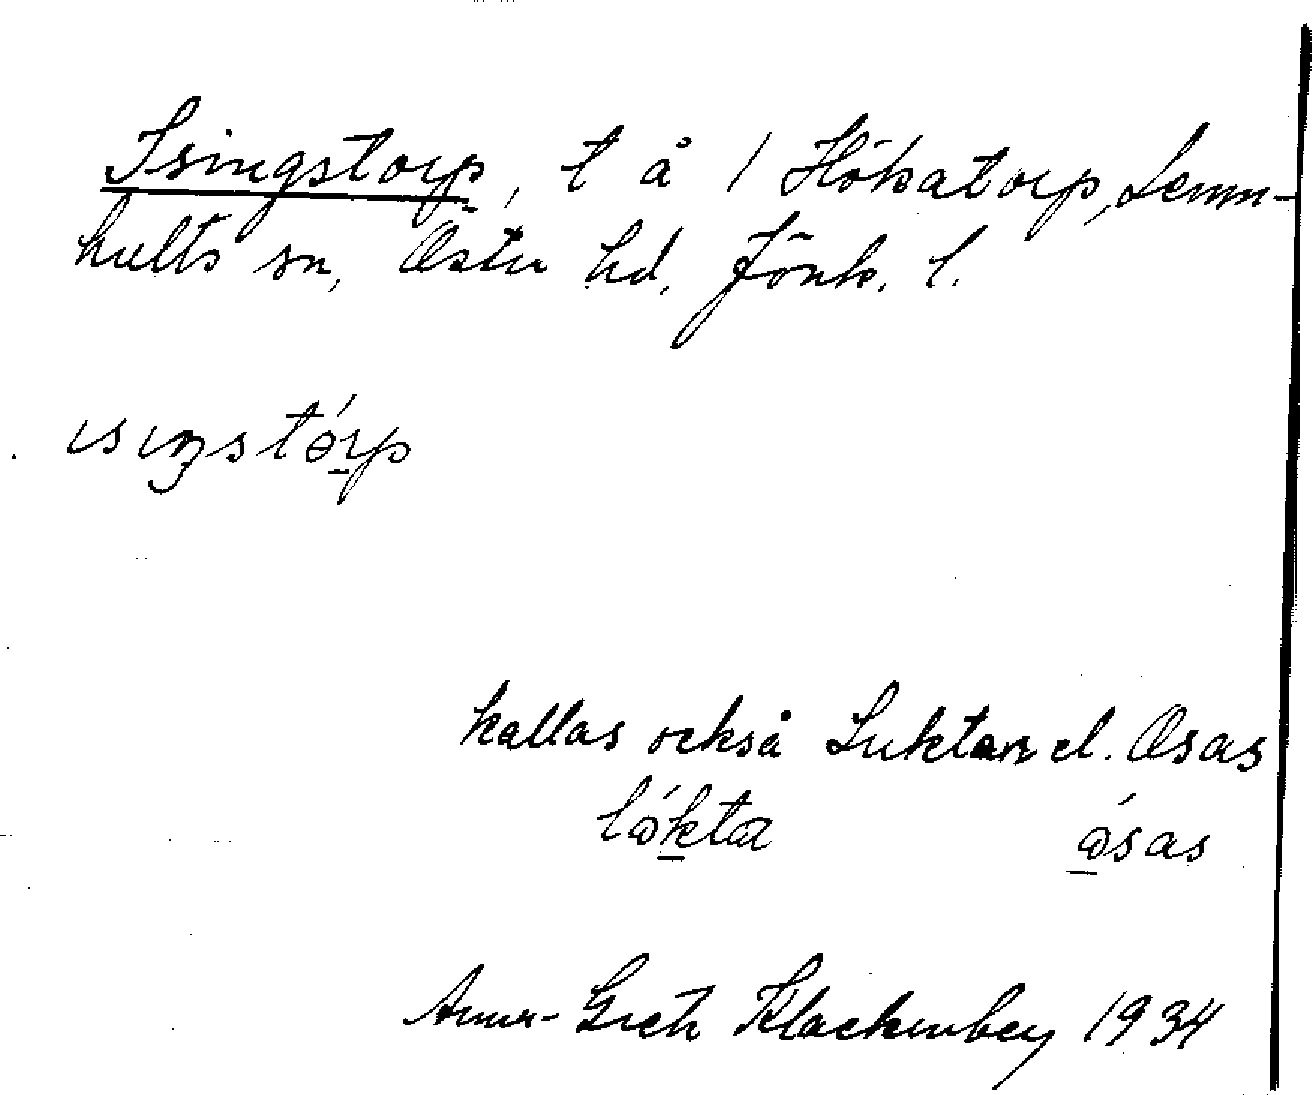 Isingstorp, t å 1 Hökatorp, Lemn-
hults sn, Östra hd, Jönk. l.
ısıŋstórp
kallas också Luktan el. Åsas
lókta ósas
Anna-Greth Klackenberg 1934